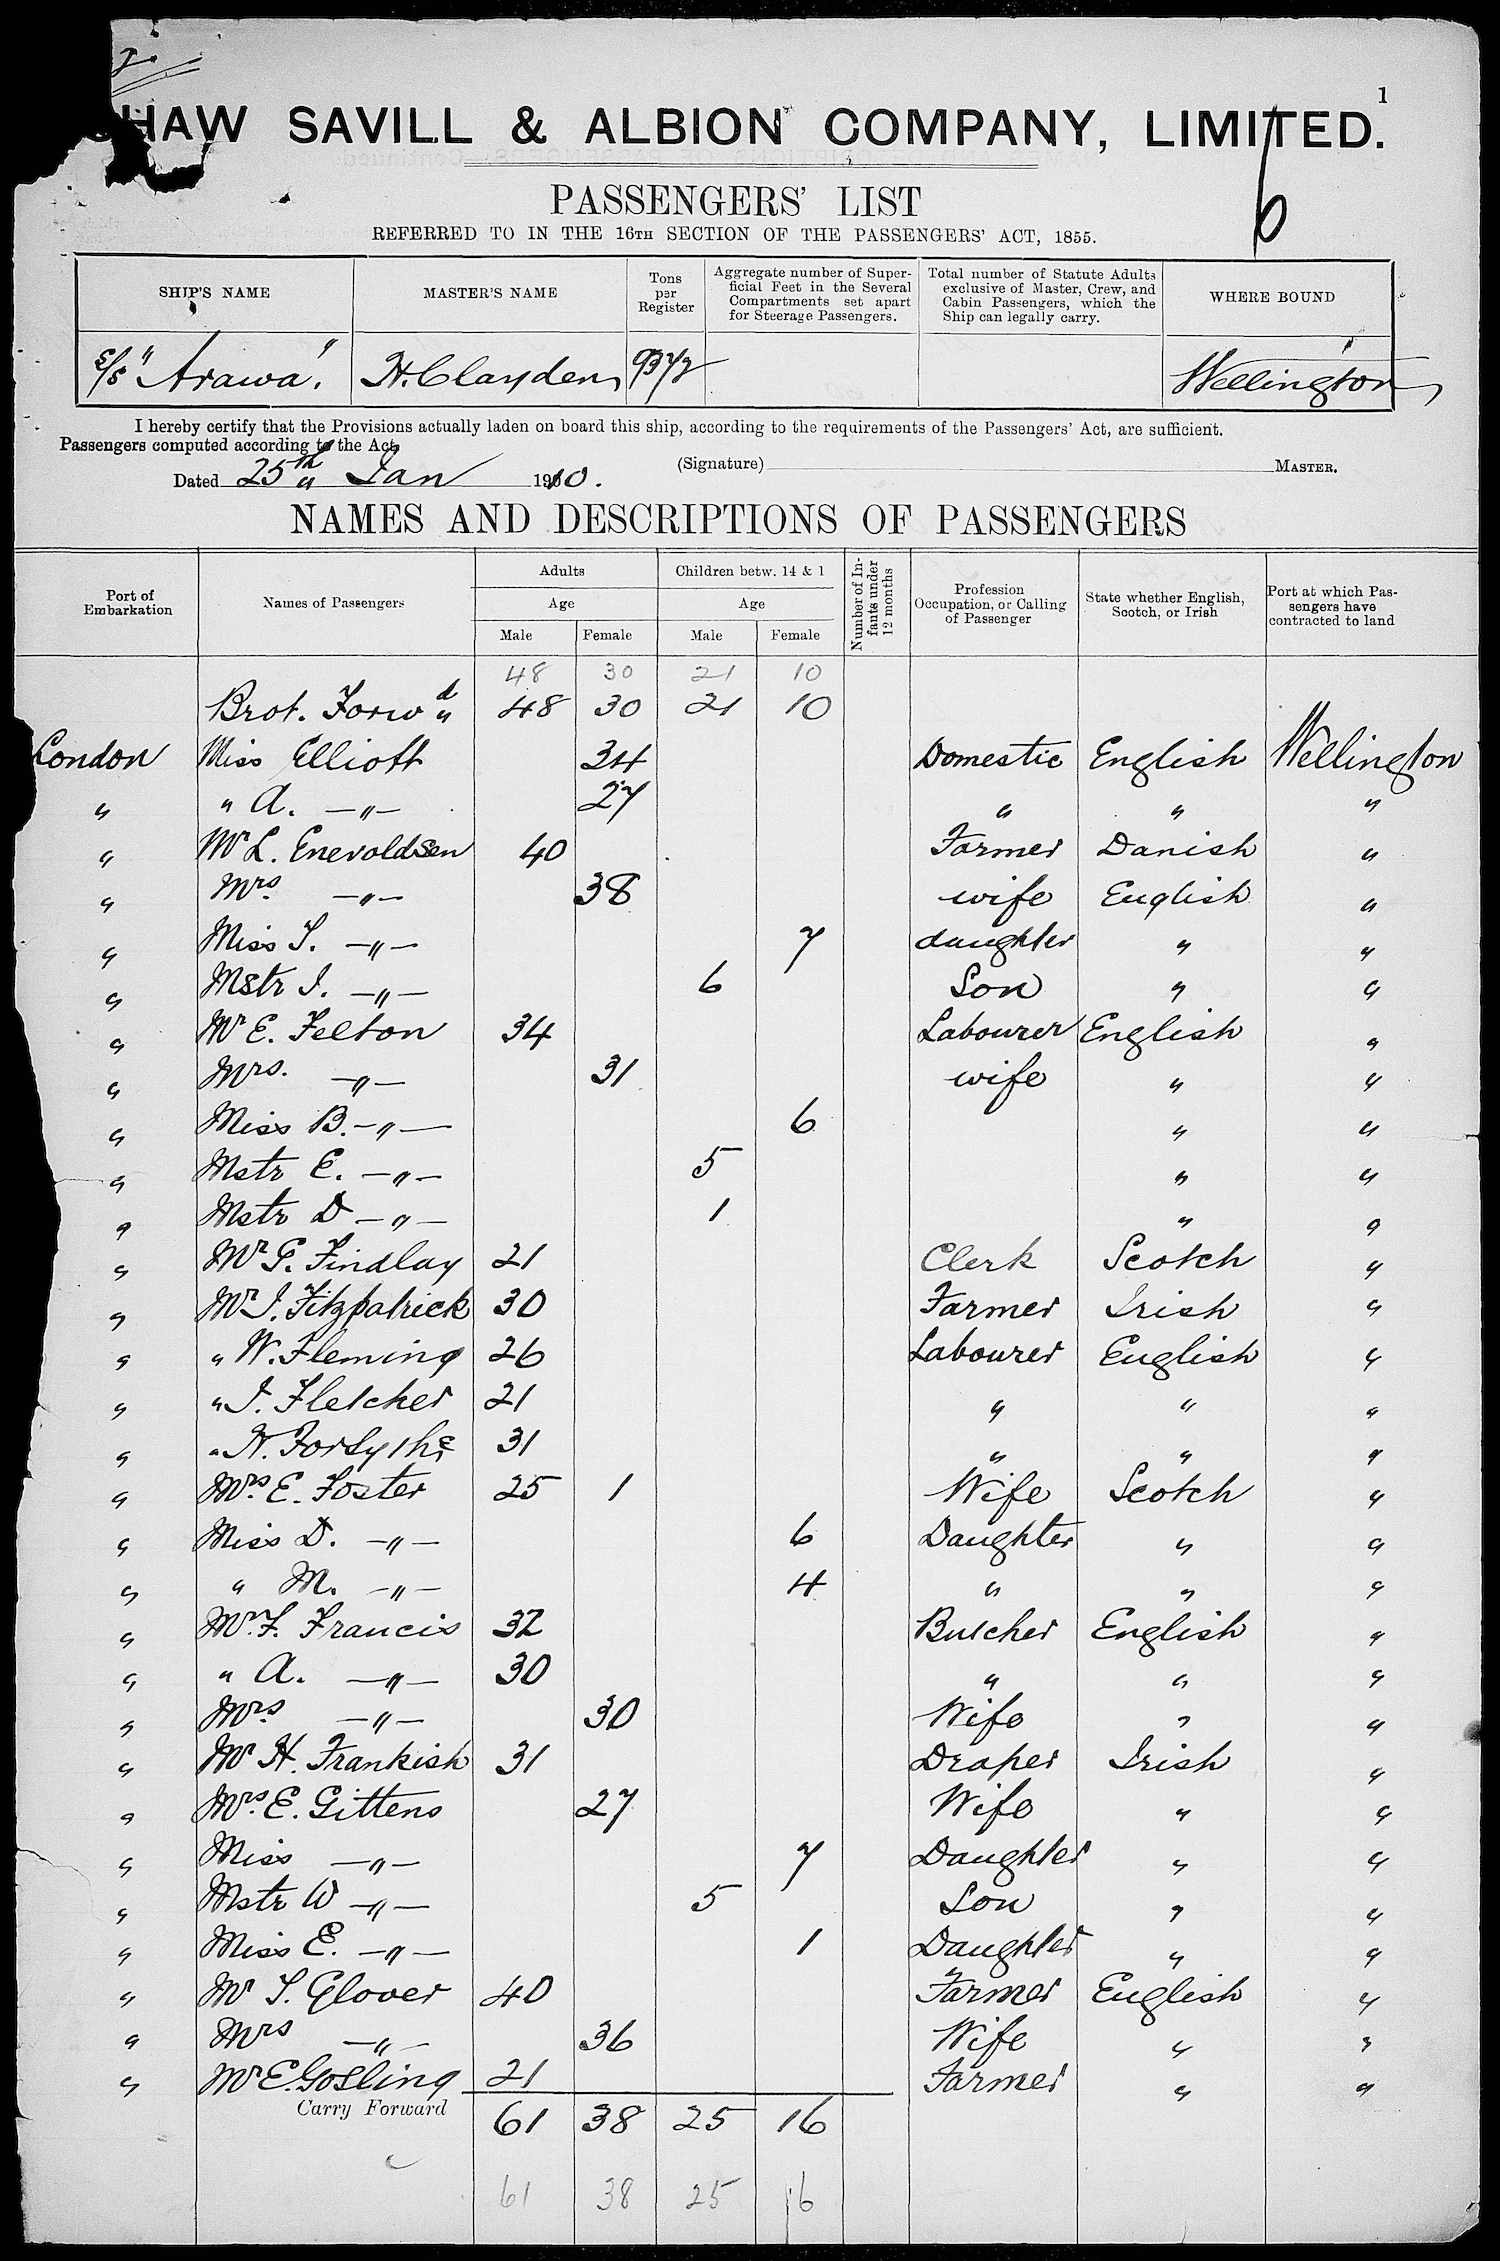 HAW SAVILL & ALBION COMPANY, LIMITED.
1
6
PASSENGERS' LIST
REFERRED TO IN THE 16TH SECTION OF THE PASSENGERS' ACT, 1855.
SHIP'S NAME MASTER'S NAME Tons per Register Aggregate number of Superficial Feet in the Several Compartments set apart for Steerage Passengers. Total number of Statute Adults exclusive of Master, Crew, and Cabin Passengers, which the Ship can legally carry. WHERE BOUND
S/S "Arawa". H. Clayden Wellington
I hereby certify that the Provisions actually laden on board this ship, according to the requirements of the Passengers' Act, are sufficient.
Passengers computed according to the Act,
Dated 25th Jan 1910. (Signature) MASTER.
NAMES AND DESCRIPTIONS OF PASSENGERS
Port of Embarkation Names of Passengers Adults Age Male Female Children betw. 14 & 1 Age Male Female Number of Infants under 12 months Profession Occupation, or Calling of Passenger State whether English, Scotch, or Irish Port at which Passengers have contracted to land
48 30 21 10
Brot. Forwd 48 30 21 10
London Miss Elliott 34 Domestic English Wellington
" " A. —"— 27 " " "
" Mr L. Enevoldsen 40 Farmer Danish "
" Mrs. —"— 38 wife English "
" Miss I. —"— 7 daughter " "
" Mstr I. —"— 6 Son " "
" Mr E. Felton 34 Labourer English "
" Mrs. —"— 31 wife " "
" Miss B. —"— 6 " "
" Mstr E. —"— 5 " "
" Mstr D —"— 1 " "
" Mr G. Findlay 21 Clerk Scotch "
" Mr J. Fitzpatrick 30 Farmer Irish "
" " W. Fleming 26 Labourer English "
" " J. Fletcher 21 " " "
" " H. Forsythe 31 " " "
" Mrs. E. Foster 25 1 Wife Scotch "
" Miss D. —"— 6 Daughter " "
" " M. —"— 4 " " "
" Mr. F. Francis 32 Butcher English "
" " A. —"— 30 " " "
" Mrs. —"— 30 Wife " "
" Mr H. Frankish 31 Draper Irish "
" Mrs. E. Gittens 27 Wife " "
" Miss —"— 7 Daughter " "
" Mstr W —"— 5 Son " "
" Miss E. —"— 1 Daughter " "
" Mr T. Glover 40 Farmer English "
" Mrs —"— 36 Wife " "
" Mr E. Gosling 21 Farmer " "
Carry Forward 61 38 25 16
61 38 25 16